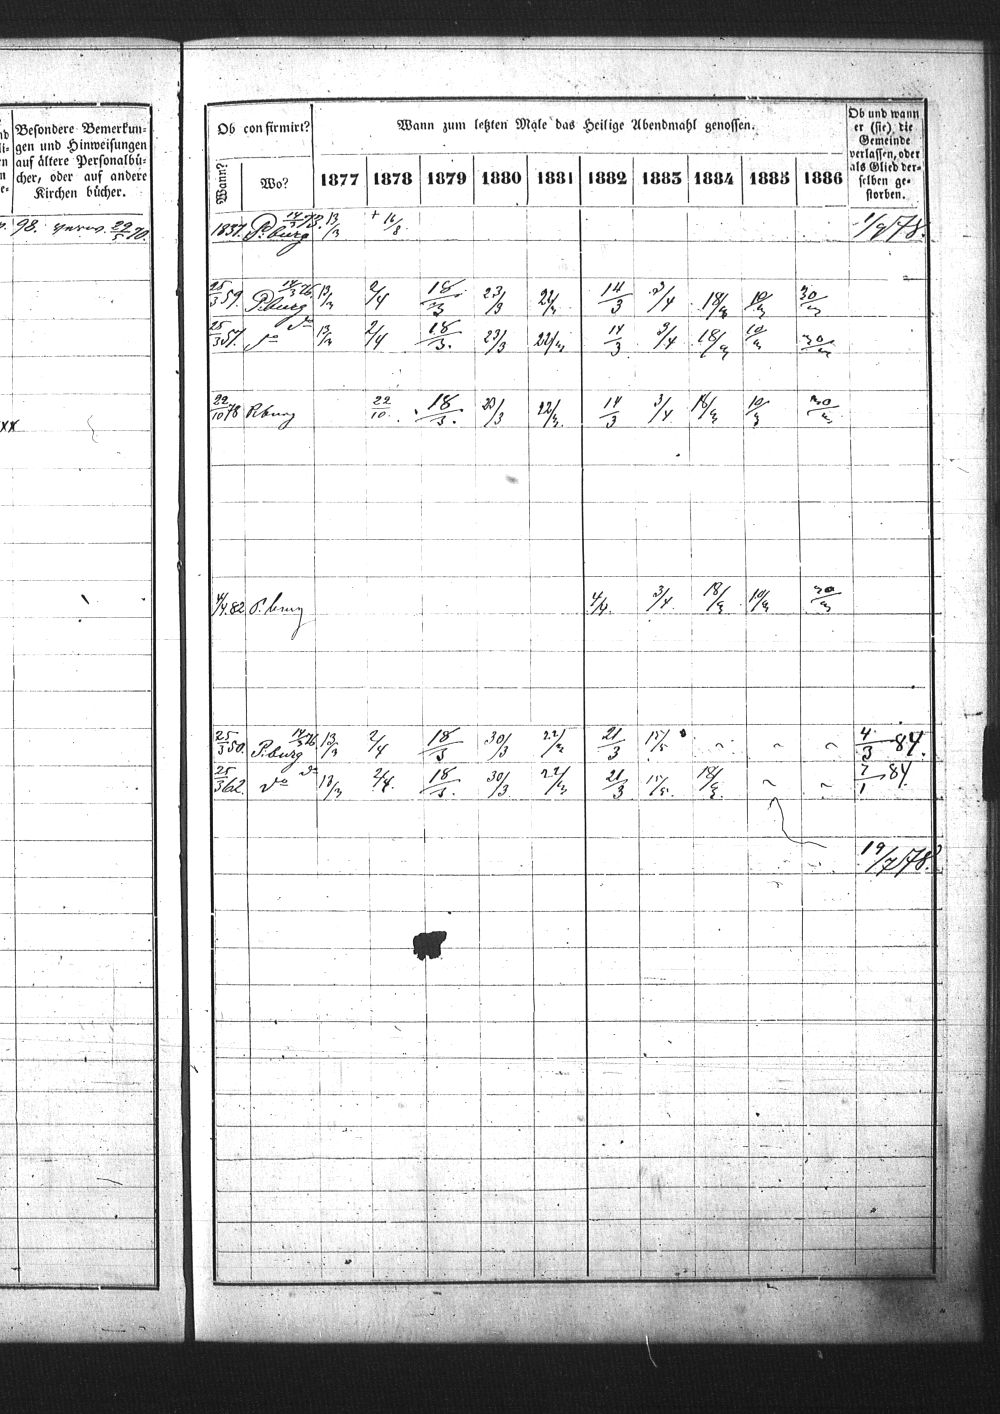 Besondere Bemerkun-
gen und Hinweisungen
auf ältere Personalbü-
cher, oder auf andere
Kirchen bücher.
98. 29/5 70.
Ob confirmirt?
Wann?
Wo?
Wann zum letzten Male das Heilige Abendmahl genossen.
1877 1878 1879 1880 1881 1882 1883 1884 1885 1886
Ob und wann
er (sie) die
Gemeinde
verlassen, oder
als Glied der-
selben ge-
storben.
1837. P.burg 13/3 + 16/8 1/9 78.
25/3 59. P.burg 14/3 76. 13/3 2/4 18/3 23/3 22/3 14/3 3/4 18/3 10/3 30/3
25/3 57. do 13/3 2/4 18/3. 23/3 22/3 14/3 3/4 18/3 10/3 30/3
22/10 78 P.burg 22/10. 18/3. 23/3 22/3. 14/3 3/4. 18/3 10/3 30/3
xx
4/4. 82 P.burg 4/4. 3/4. 18/3 10/3 30/3
25/3 50. P.burg 14/3 76. 13/3 2/4 18/3 30/3 22/3 21/3 15/5 ~ ~ ~ 4/3 84.
25/3 62. do 13/3 2/4. 18/3. 30/3 22/3 21/3 15/5. 18/3 ~ ~ 7/1 84.
19/7 78.